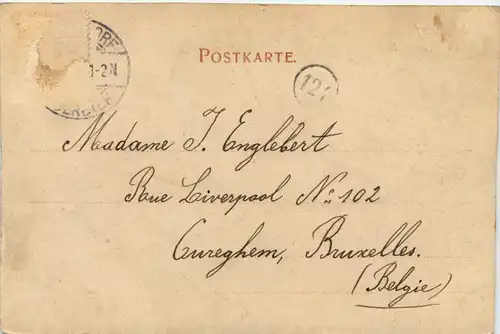 POSTKARTE.
1-2N
121
Madame J. Englebert
Rue Liverpool No 102
Cureghem, Bruxelles.
(Belgie)